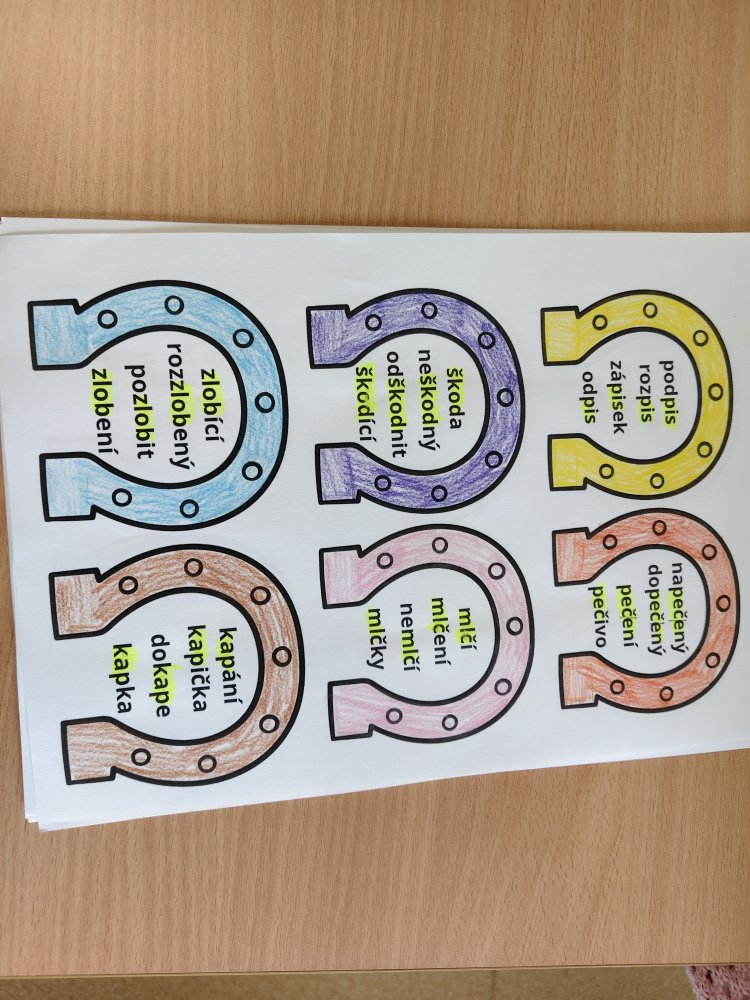 podpis
rozpis
zápisek
odpis
napečený
dopečený
pečení
pečivo
škoda
neškodný
odškodnit
škodící
mlčí
mlčení
nemlčí
mlčky
zlobící
rozzlobený
pozlobit
zlobení
kapání
kapička
dokape
kapka